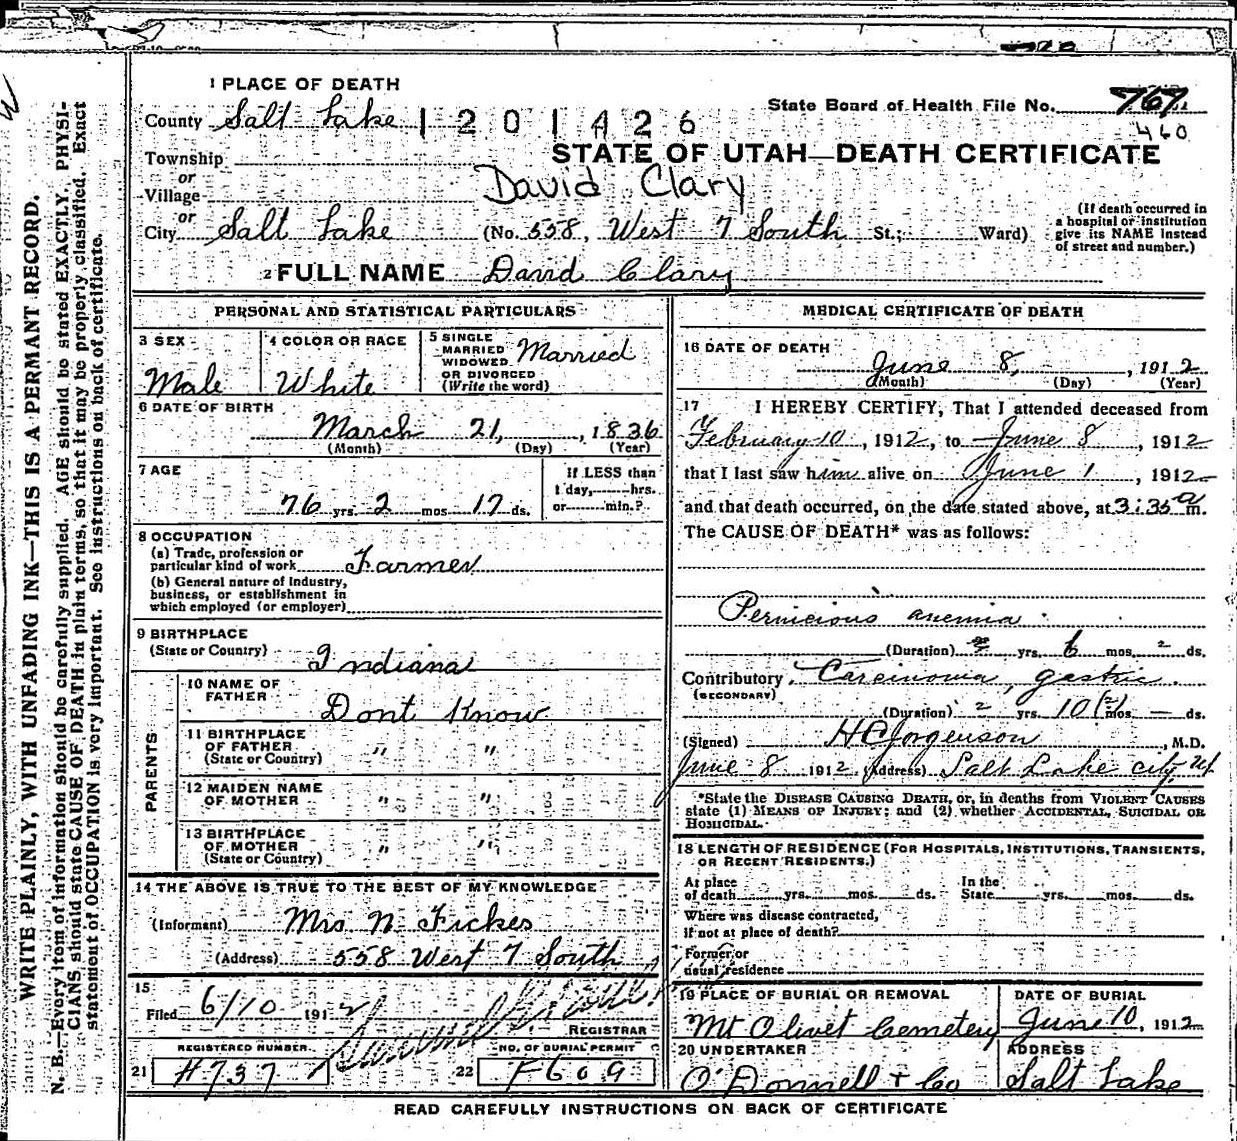 1 PLACE OF DEATH
State Board of Health File No. 767
460
County Salt Lake 1201426
STATE OF UTAH—DEATH CERTIFICATE
Township
or
David Clary
Village
or
City Salt Lake (No. 558, West 7 South St.; Ward)
(If death occurred in
a hospital or institution
give its NAME instead
of street and number.)
2 FULL NAME David Clary
PERSONAL AND STATISTICAL PARTICULARS
3 SEX
Male
4 COLOR OR RACE
White
5 SINGLE
MARRIED
WIDOWED
OR DIVORCED
(Write the word)
Married
6 DATE OF BIRTH
March 21, , 1836
(Month) (Day) (Year)
7 AGE
76 yrs. 2 mos 17 ds.
If LESS than
1 day, hrs.
or min.?
8 OCCUPATION
(a) Trade, profession or
particular kind of work Farmer
(b) General nature of industry,
business, or establishment in
which employed (or employer)
9 BIRTHPLACE
(State or Country) Indiana
PARENTS
10 NAME OF
FATHER
Dont Know
11 BIRTHPLACE
OF FATHER
(State or Country) " "
12 MAIDEN NAME
OF MOTHER " "
13 BIRTHPLACE
OF MOTHER
(State or Country) " "
14 THE ABOVE IS TRUE TO THE BEST OF MY KNOWLEDGE
(Informant) Mrs N. Fickes
(Address) 558 West 7 South
15
Filed 6/10 1912
REGISTRAR
REGISTERED NUMBER
21 #737
NO. OF BURIAL PERMIT
22 F609
MEDICAL CERTIFICATE OF DEATH
16 DATE OF DEATH
June 8, , 1912
(Month) (Day) (Year)
17 I HEREBY CERTIFY, That I attended deceased from
February 10, 1912, to June 8, 1912
that I last saw him alive on June 1, 1912
and that death occurred, on the date stated above, at 3:35 a m.
The CAUSE OF DEATH* was as follows:
Pernicious anemia
(Duration) yrs. 6 mos. 2 ds.
Contributory Carcinoma, gastric.
(SECONDARY)
(Duration) 2 yrs. 10 (?) mos. — ds.
(Signed) H C Jorgenson, M.D.
June 8 1912 (Address) Salt Lake City, Ut
*State the DISEASE CAUSING DEATH, or, in deaths from VIOLENT CAUSES
state (1) MEANS OF INJURY; and (2) whether ACCIDENTAL, SUICIDAL OR
HOMICIDAL.
18 LENGTH OF RESIDENCE (FOR HOSPITALS, INSTITUTIONS, TRANSIENTS,
OR RECENT RESIDENTS.)
At place
of death yrs. mos. ds.
In the
State yrs. mos. ds.
Where was disease contracted,
if not at place of death?
Former or
usual residence
19 PLACE OF BURIAL OR REMOVAL
Mt Olivet Cemetery
DATE OF BURIAL
June 10, 1912
20 UNDERTAKER
O'Donnell & Co
ADDRESS
Salt Lake
READ CAREFULLY INSTRUCTIONS ON BACK OF CERTIFICATE
WRITE PLAINLY, WITH UNFADING INK—THIS IS A PERMANT RECORD.
N. B.—Every item of information should be carefully supplied. AGE should be stated EXACTLY. PHYSI-
CIANS should state CAUSE OF DEATH in plain terms, so that it may be properly classified. Exact
statement of OCCUPATION is very important. See instructions on back of certificate.